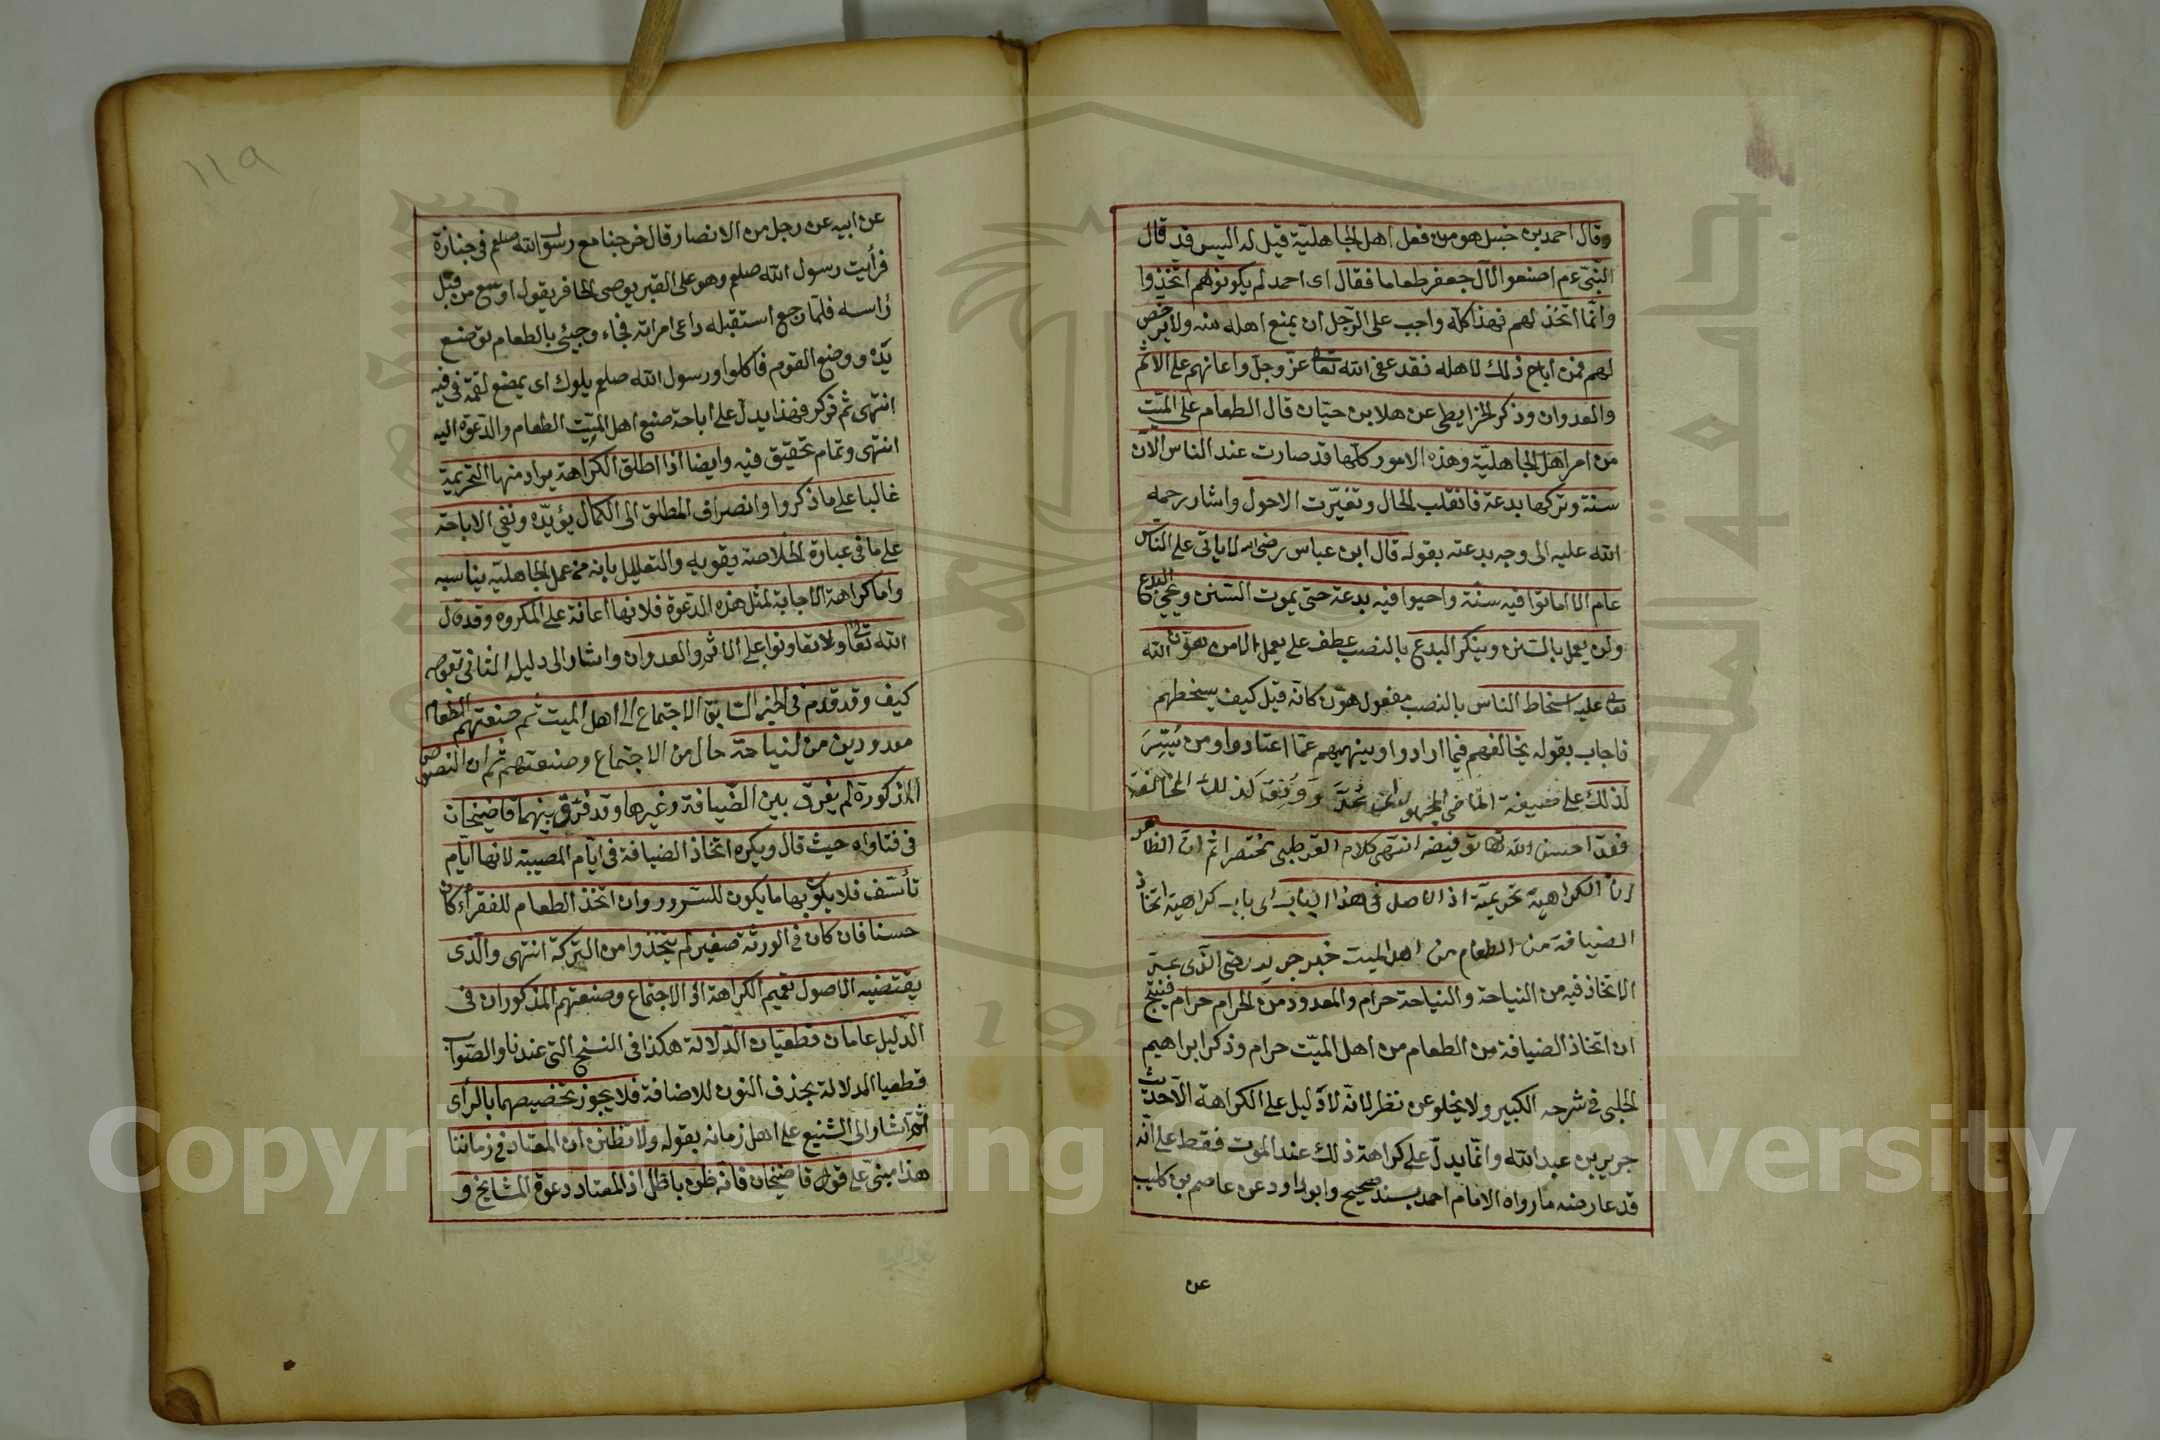 وقال احمد بن حنبل هو من فعل اهل الجاهلية قيل له اليس قد قال
النبي عم اصنعوا لآل جعفر طعاما فقال اى احمد لم يكونوا هم اتخذوا
وانما اتخذ لهم فهذا كله واجب على الرجل ان يمنع اهله منه ولا يرخص
لهم فمن اباح ذلك لاهله فقد عصى الله تعا عز وجل واعانهم على الاثم
والعدوان وذكر الخرايطى عن هلال بن حيان قال الطعام على الميت
من امر اهل الجاهلية وهذه الامور كلها قد صارت عند الناس الآن
سنة وتركها بدعة فانقلب الحال وتغيرت الاحول واشار رحمه
الله عليه الى وجه بدعته بقوله قال ابن عباس رضى الله لا ياتى على الناس
عام الا اماتوا فيه سنة واحيوا فيه بدعة حتى يموت السنن ويحيى البدع
ولن يعمل بالسنن وينكر البدع بالنصب عطف على يعمل الا من هون الله
تعا عليه اسخاط الناس بالنصب مفعول هون كانه قيل كيف يسخطهم
فاجاب بقوله يخالفهم فيما ارادوا وينهيهم عما اعتادوا ومن يسر
لذلك على صيغة الماضى المجهول ووفق كذلك المخالفة
فقد احسن الله تعا توفيضه انتهى كلام القرطبى مختصرا ثم ان الظاهر
ان الكراهية تحريمية اذ الاصل فى هذا الباب اى باب كراهية اتخاذ
الضيافة من الطعام من اهل الميت خبر جرير رضى الذى عد
الاتخاذ فيه من النياحة والنياحة حرام والمعدود من الحرام حرام فينتج
ان اتخاذ الضيافة من الطعام من اهل الميت حرام وذكر ابراهيم
الحلبى فى شرحه الكبير ولا يخلو عن نظر لانه لا دليل على الكراهة الا حديث
جرير بن عبد الله وانما يدل على كراهة ذلك عند الموت فقط على انه
قد عارضه ما رواه الامام احمد بسند صحيح وابو داود عن عاصم بن كليب
عن
١١٩
عن ابيه عن رجل من الانصار قال خرجنا مع رسول الله صلعم فى جنازة
فرأيت رسول الله صلعم وهو على القبر يوصى الحافر يقول اوسع من قبل
رأسه فلما رجع استقبله داعى امراته فجاء وجيئ بالطعام فوضع
يده ووضع القوم فاكلوا ورسول الله صلعم يلوك اى يمضغ لقمة فى فيه
انتهى ثم ذكر فهذا يدل على اباحة صنع اهل الميت الطعام والدعوة اليه
انتهى وتمام تحقيق فيه وايضا اذا اطلق الكراهة يراد منها التحريمية
غالبا على ما ذكروا وانصراف المطلق الى الكمال يؤيده ونفى الاباحة
على ما فى عبارة الخلاصة يقويه والتعليل بانه من عمل الجاهلية يناسبه
واما كراهة الاجابة لمثل هذه الدعوة فلانها اعانة على المكروه وقد قال
الله تعا ولا تعاونوا على الاثم والعدوان واشار الى دليله الثانى بقوله
كيف وقد قدم فى الخبر السابق الاجتماع الى اهل الميت ثم صنعتهم الطعام
معدودين من النياحة حال من الاجتماع وصنعتهم ثم ان النصوص
المذكورة لم يفرق بين الضيافة وغيرها وقد فرق بينهما قاضيخان
فى فتاواه حيث قال ويكره اتخاذ الضيافة فى ايام المصيبة لانها ايام
تأسف فلا يكون بها ما يكون للسرور وان اتخذ الطعام للفقراء كان
حسنا فان كان فى الورثة صغير لم يتخذوا من التركة انتهى والذى
يقتضيه الاصول تعميم الكراهة اذ الاجتماع وصنعتهم المذكوران فى
الدليل عامان قطعيان الدلالة هكذا فى النسخ التى عندنا والصواب
قطعيا الدلالة بحذف النون للاضافة فلا يجوز تخصيصهما بالرأى
ثم اشار الى الشنيع على اهل زمانه بقوله ولا تظنن ان المعتاد فى زماننا
هذا مبنى على قول قاضيخان فانه ظن باطل اذ المعتاد دعوة المشايخ و
Copyright © King Saud University
جامعة الملك سعود
195